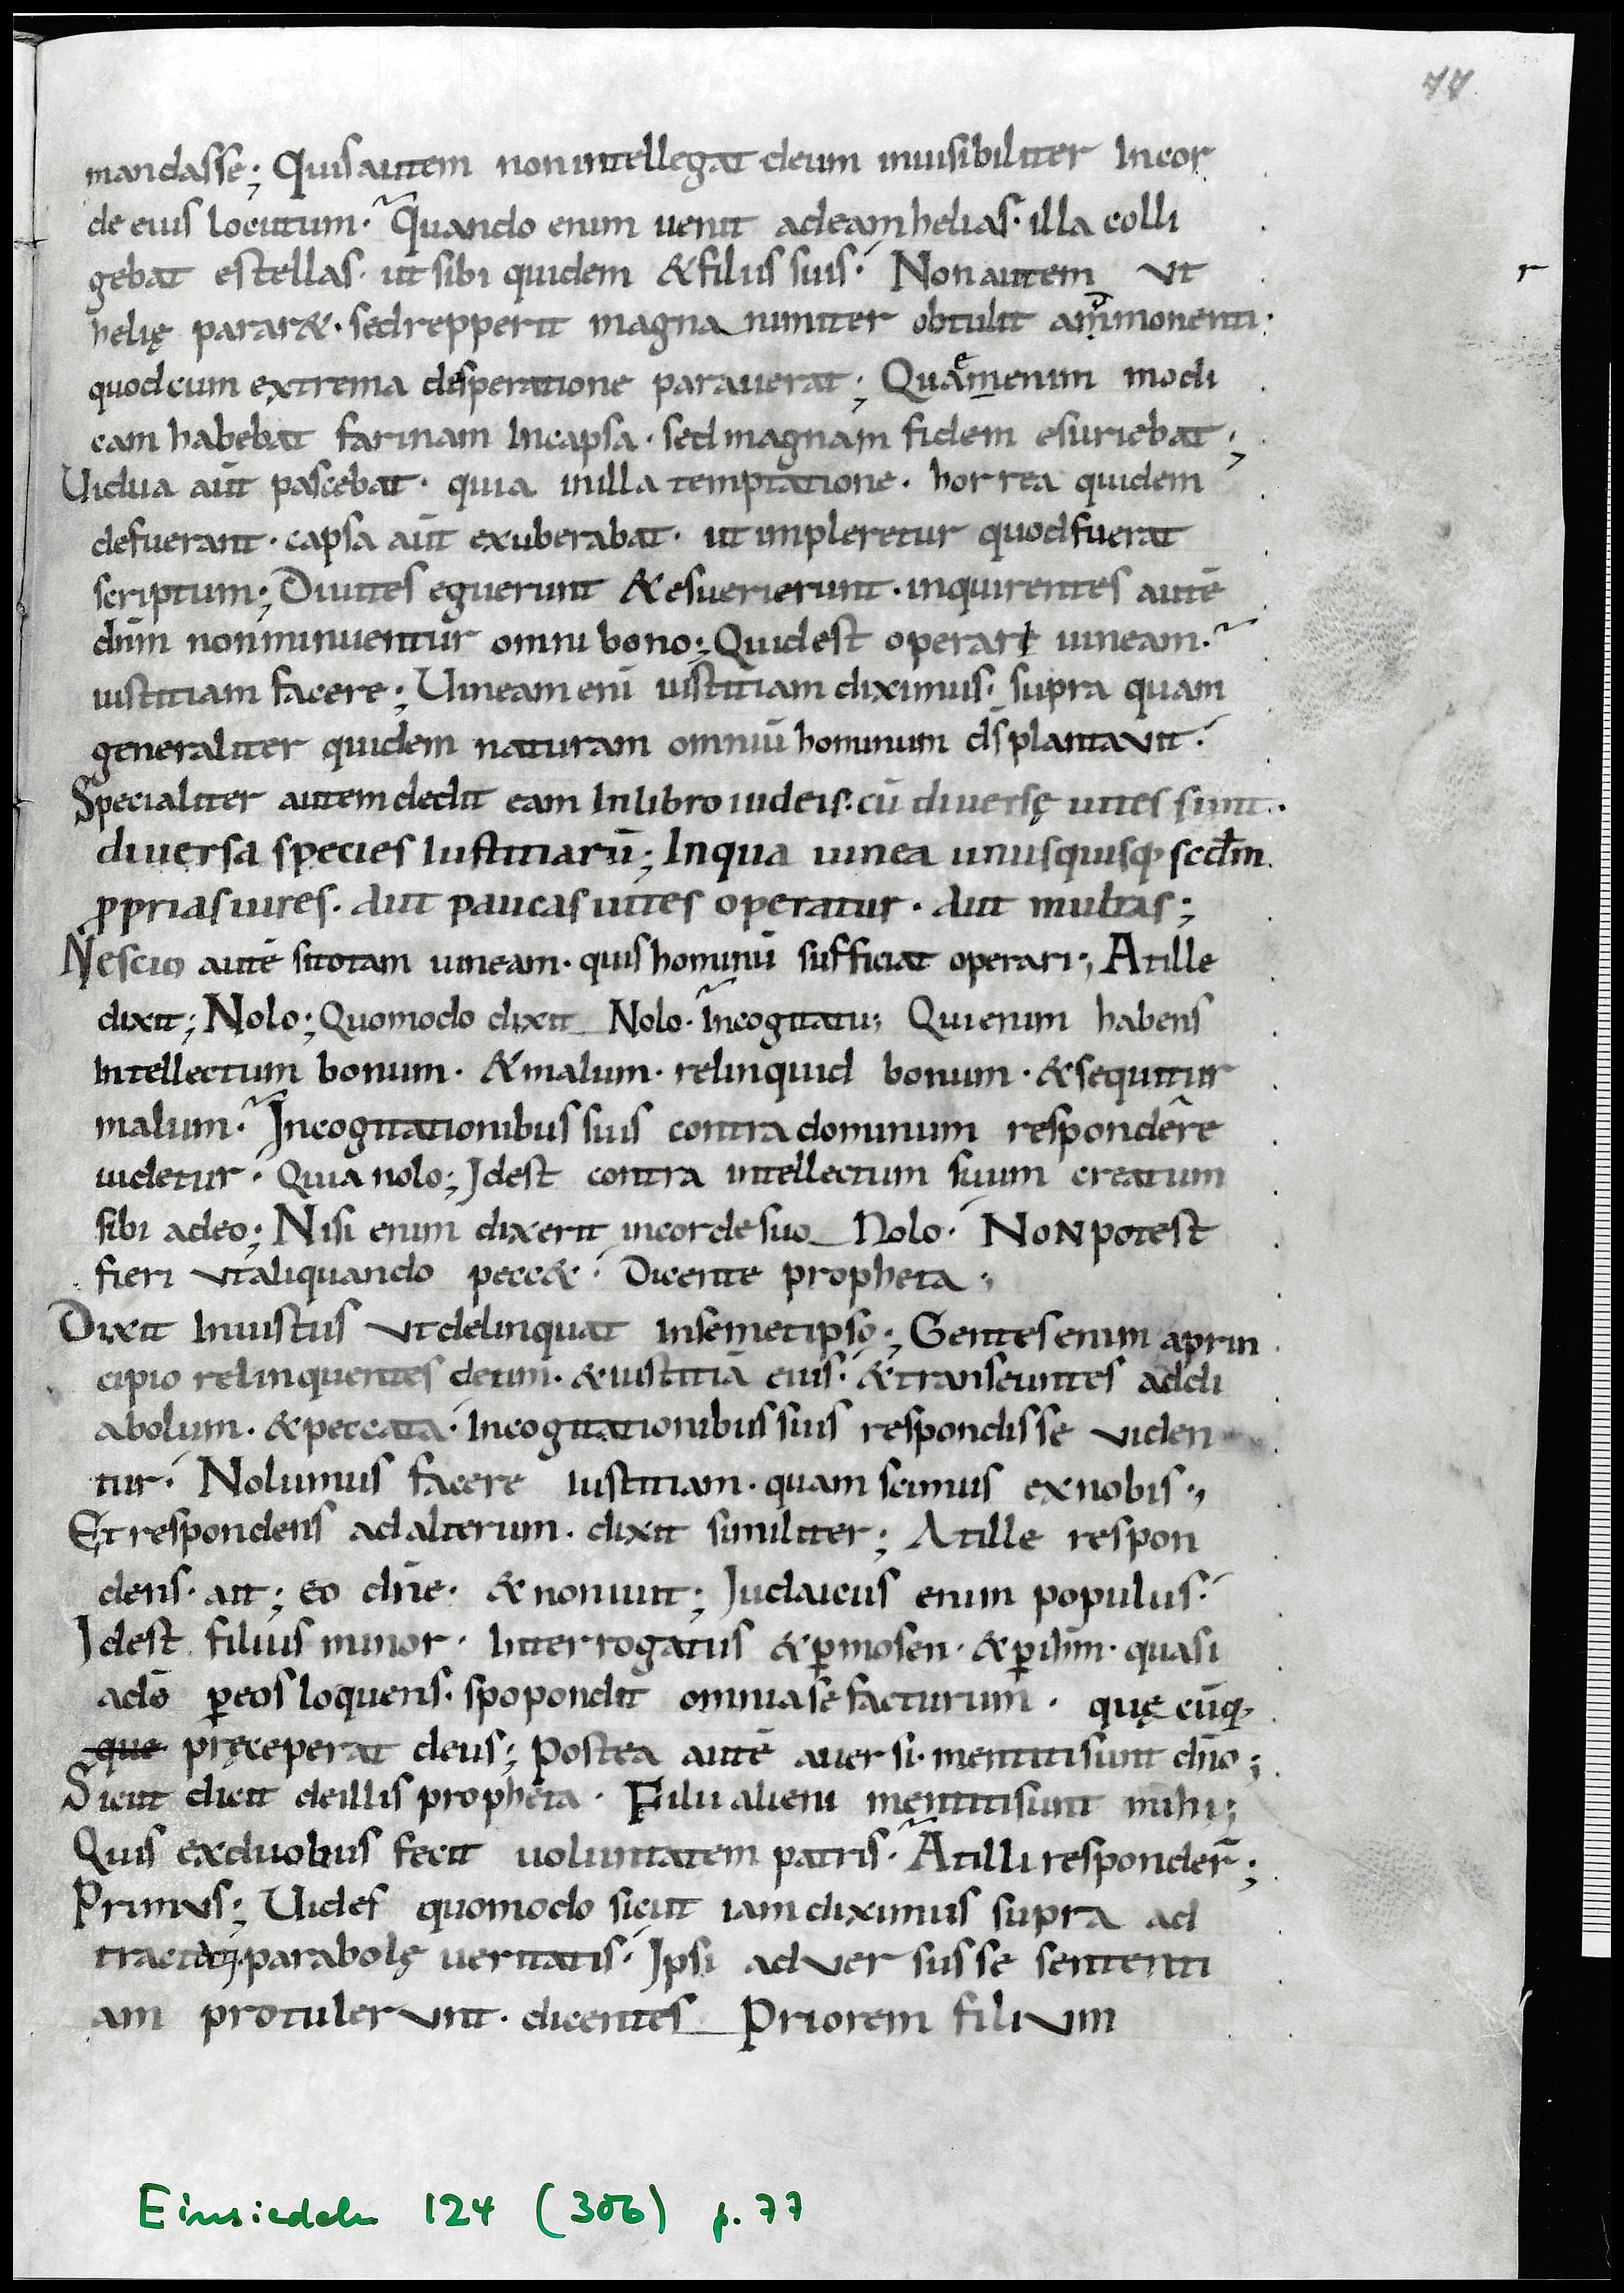 77
mandasse; Quis autem non intellegat deum inuisibiliter In cor
de eius locutum. Quando enim uenit ad eam helias. illa colli
gebat estellas. ut sibi quidem & filiis suis. Non autem ut
helię parar&. sed repperit magnanimiter obtulit ammonenti;
quod cum extrema desperatione parauerat; Quamenim modi
cam habebat farinam In capsa. sed magnam fidem esuriebat;
Uidua aūt pascebat. quia in illa temptatione. horrea quidem
defuerant. capsa aūt exuberabat. ut impleretur quod fuerat
scriptum; Diuites eguerunt & esuerierunt. inquirentes autē
dnm̄ non minuentur omni bono; Quid est operari uineam.
iustitiam facere; Uineam enī iustitiam diximus. supra quam
generaliter quidem naturam omniū hominum ds̄ plantauit.
Specialiter autem dedit eam In libro iudeis. cū diuersę uites sunt.
diuersa species Iustitiarū; In qua uinea unusquisq; scdm̄
ppriasuires. Aut paucas uites operatur. Aut multas;
Nescio autē si totam uineam. quis hominū sufficiat operari; At ille
dixit; Nolo; Quomodo dixit Nolo. In cogitatu; Qui enim habens
Intellectum bonum. & malum. relinquid bonum. & sequitur
malum. In cogitationibus suis contra dominum respondēre
uidetur. Quia nolo; Id est contra intellectum suum creatum
sibi a deo; Nisi enim dixerit in corde suo Nolo. Non potest
fieri ut aliquando pecc&. Dicente propheta;
Dixit Iniustus ut delinquat In semetipso; Gentes enim a prin
cipio relinquentes deum. & iustitiā eius. & transeuntes ad di
abolum. & peccata. In cogitationibus suis respondisse uiden
tur. Nolumus facere iustitiam. quam scimus ex nobis;
Et respondens ad alterum. dixit similiter; At ille respon
dens. ait; eo dn̄e. & non iuit; Iudaicus enim populus.
Id est filius minor. Interrogatus & p̄ mosen. & p̄ ihm̄. quasi
a dō p̄ eos loquens. spopondit omnia se facturum. quę cūq;
que pręceperat deus; Postea autē auersi. mentiti sunt dn̄o;
Sicut dicit de illis propheta. Filii alieni mentiti sunt mihi;
Quis ex duobus fecit uoluntatem patris. At illi responder̄;
Primus; Uidef quomodo sicut iam diximus supra ad
tracti parabolę ueritatis. Ipsi aduersus se sententi
am protulerunt. dicentes Priorem filium
Einsiedeln 124 (306) p. 77